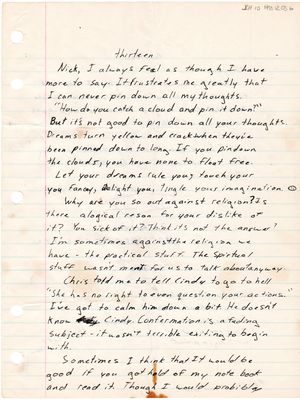 thirteen
Nick, I always feel as though I have
more to say. It frustrates me greatly that
I can never pin down all my thoughts.
"How do you catch a cloud and pin it down?"
But it's not good to pin down all your thoughts.
Dreams turn yellow and crack when they're
been pinned down to long. If you pin down
the clouds, you have none to float free.
Let your dreams rule you, touch your
you fancy, delight you, tingle your imagination.
Why are you so out against religion? Is
there a logical reason for your dislike of
it? You sick of it? Think it's not the answer?
I'm sometimes against the religion we
have - the practical stuff. The Spiritual
stuff wasn't ment for us to talk about anyway.
Chris told me to tell Cindy to go to hell
"She has no right to even question your actions."
I've got to calm him down a bit. He doesn't
know Cindy. Confermation is a fading
subject - it wasn't terrible exiting to begin
with.
Sometimes I think that it would be
good if you got hold of my note book
and read it. Though I would probibley